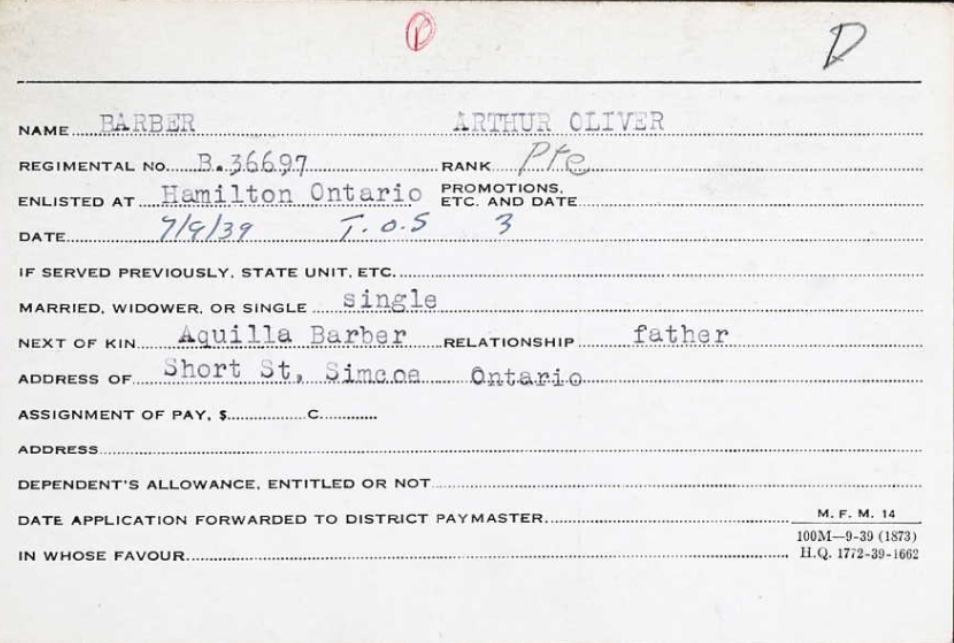 D
NAME BARBER ARTHUR OLIVER
REGIMENTAL NO. B.36697 RANK Pte
ENLISTED AT Hamilton Ontario PROMOTIONS, ETC. AND DATE
DATE 7/9/39 T.O.S 3
IF SERVED PREVIOUSLY, STATE UNIT, ETC.
MARRIED, WIDOWER, OR SINGLE single
NEXT OF KIN Aquilla Barber RELATIONSHIP father
ADDRESS OF Short St, Simcoe Ontario
ASSIGNMENT OF PAY, $ C
ADDRESS
DEPENDENT'S ALLOWANCE, ENTITLED OR NOT
DATE APPLICATION FORWARDED TO DISTRICT PAYMASTER
M. F. M. 14
100M—9-39 (1873)
IN WHOSE FAVOUR
H.Q. 1772-39-1662